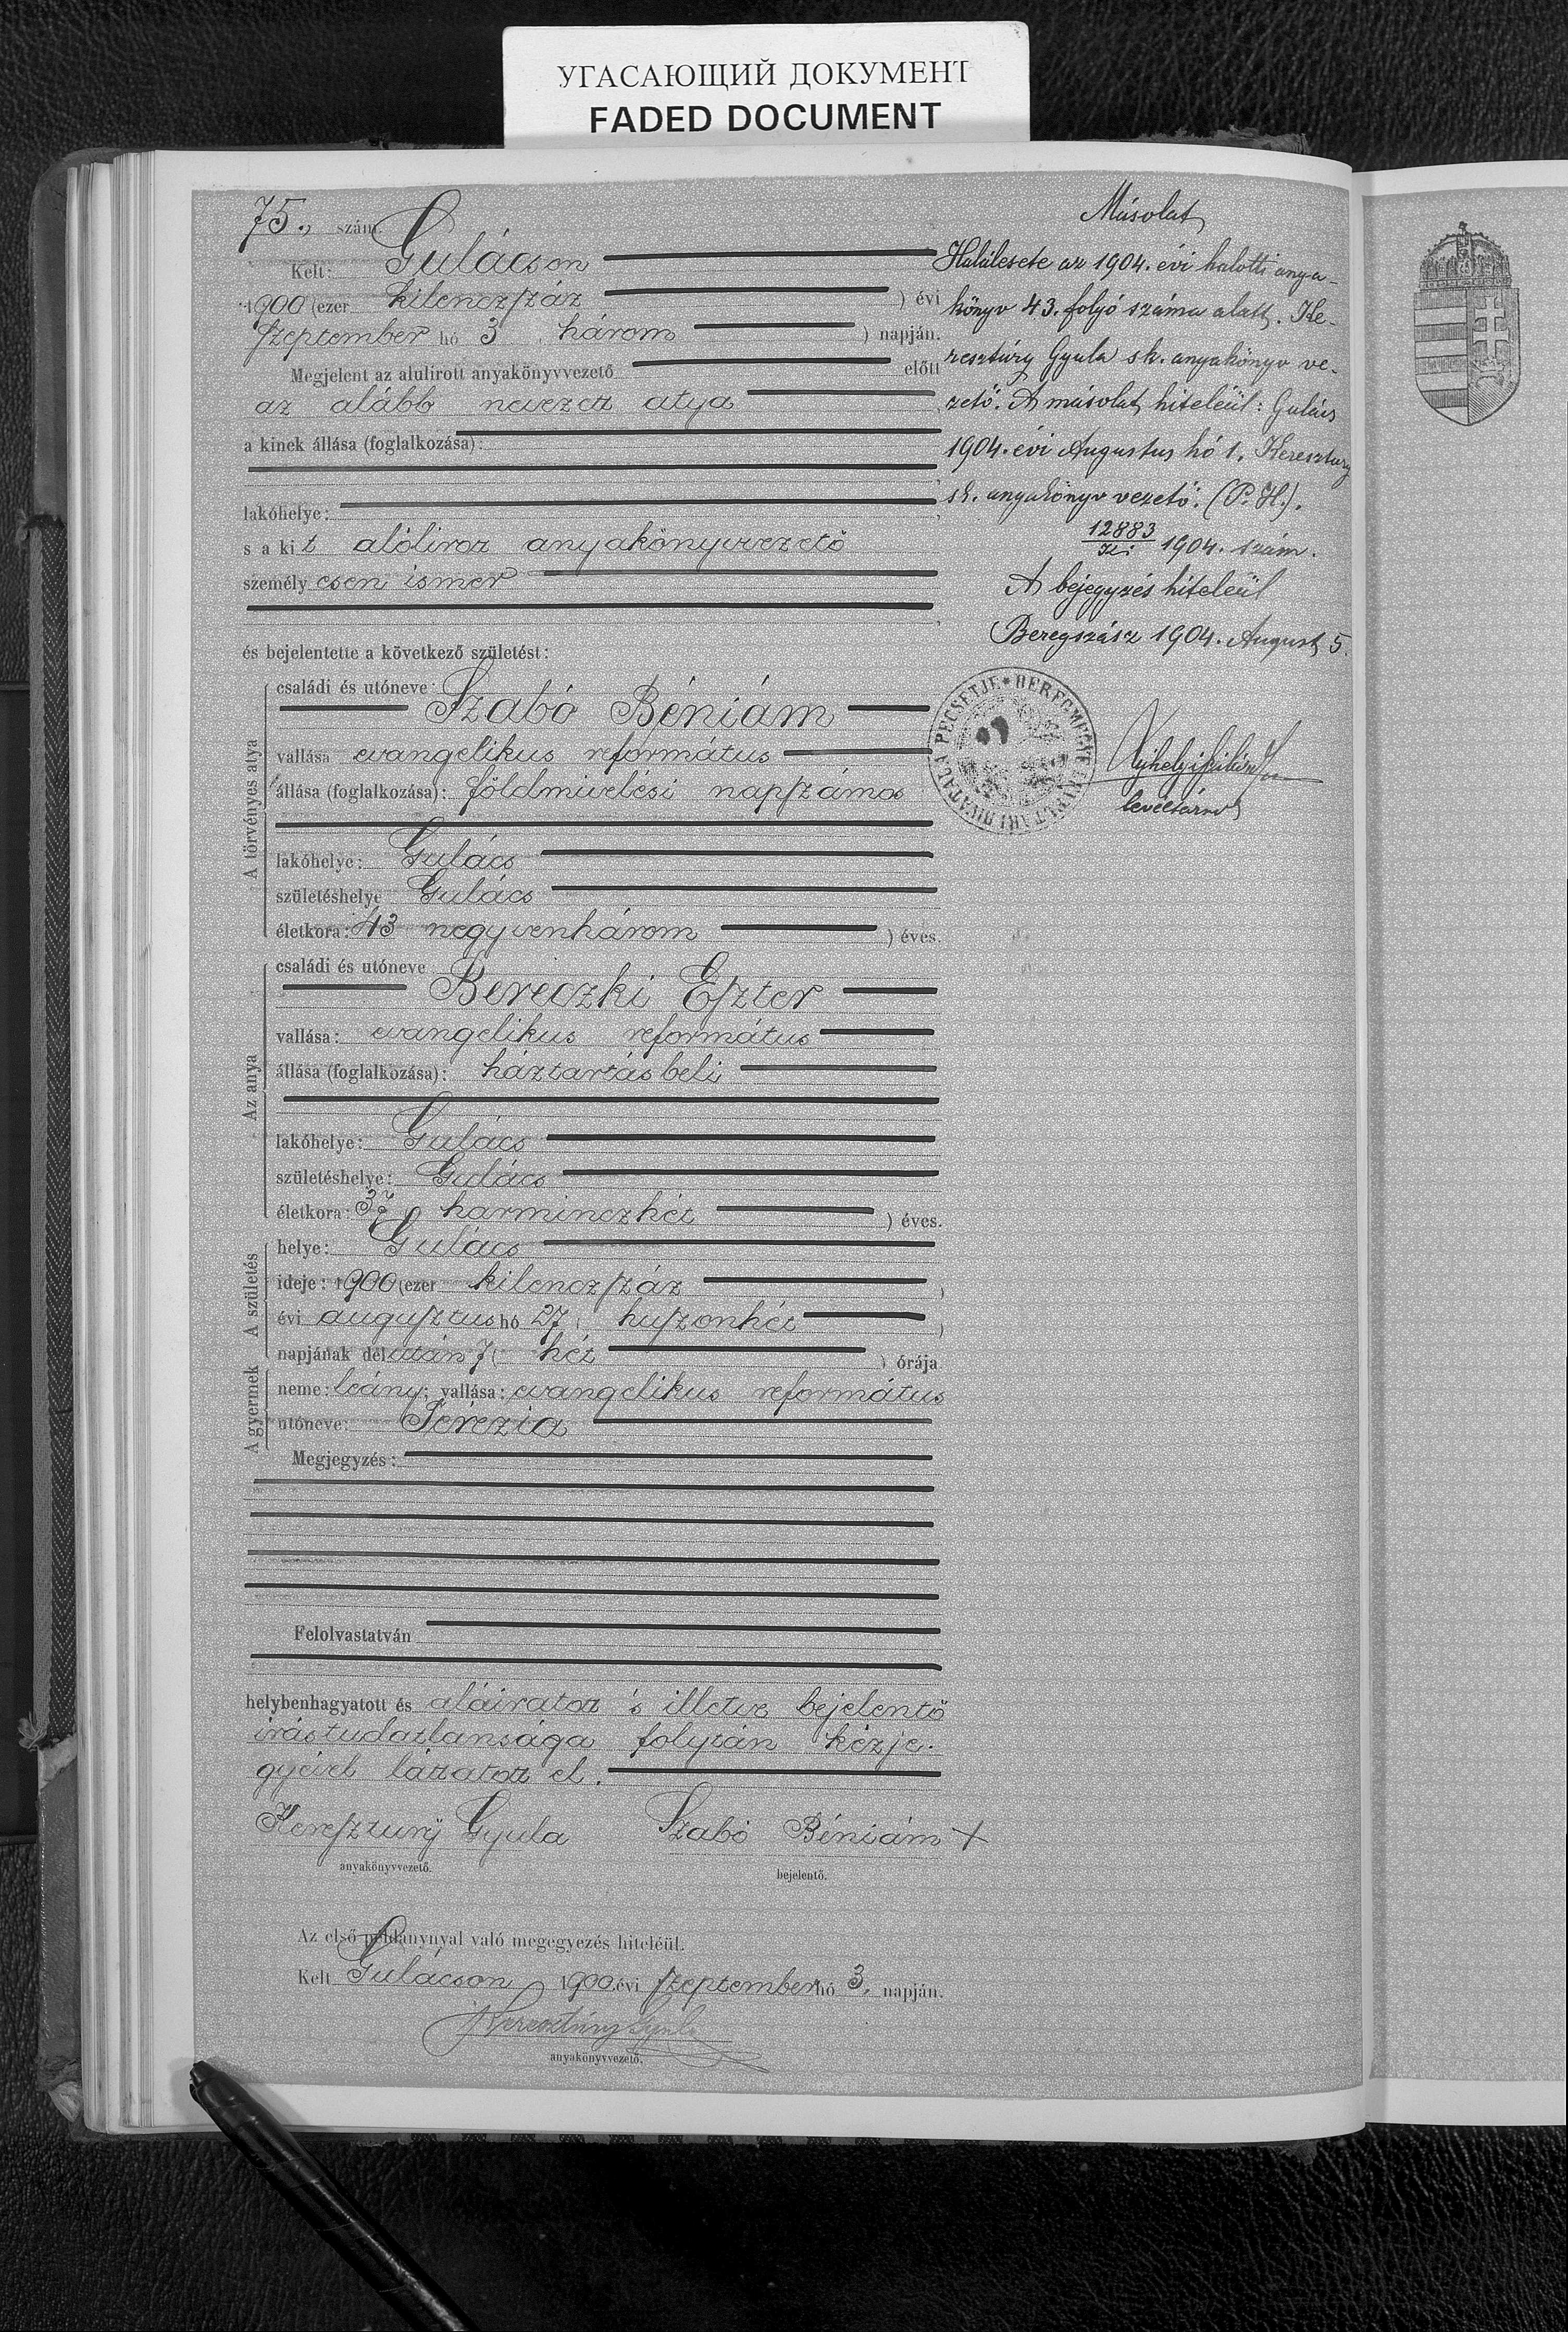 УГАСАЮЩИЙ ДОКУМЕНТ
FADED DOCUMENT
75., szám.
Kelt: Gulácson
1900 (ezer kilenczszáz ) évi
Szeptember hó 3 három ) napján.
Megjelent az alulirott anyakönyvvezető előtt
az alább nevezett atya
a kinek állása (foglalkozása):
lakóhelye:
s a kit alólirott anyakönyvvezető
személyesen ismer
és bejelentette a következő születést:
A törvényes atya
családi és utóneve:
Szabó Béniám
vallása evangelikus református
állása (foglalkozása): földmivelési napszámos
lakóhelye: Gulács
születéshelye Gulács
életkora: 43 negyvenhárom ) éves.
Az anya
családi és utóneve
Bereczki Eszter
vallása: evangelikus református
állása (foglalkozása): háztartásbeli
lakóhelye: Gulács
születéshelye: Gulács
életkora: 37 ( harminczhét ) éves.
A születés
helye: Gulács
ideje: 1900 (ezer kilenczszáz )
évi augusztus hó 27 ( huszonhét )
napjának délután 7 ( hét ) órája
A gyermek
neme: leány; vallása: evangelikus református
utóneve: Terézia
Megjegyzés:
Felolvastatván
helybenhagyatott és aláiratott 's illetve bejelentő
irástudatlansága folytán kézje-
gyével láttatott el.
Keresztury Gyula Szabó Béniám +
anyakönyvvezető. bejelentő.
Az első példánynyal való megegyezés hiteléül.
Kelt Gulácson 1900. évi Szeptember hó 3. napján.
Keresztúry Gyula
anyakönyvvezető.
Másolat
Halálesete az 1904. évi halotti anya-
könyv 43. folyó száma alatt. Ke-
resztúry Gyula sk. anyakönyv ve-
zető. A másolat hiteléül: Gulács
1904. évi Augustus hó 1. Keresztury
sk. anyakönyv vezető. (P. H.).
12883
1904. szám.
A bejegyzés hiteléül
Beregszász 1904. August 5.
BEREGMEGYE LEVÉLTÁRI HIVATALA PECSÉTJE
levéltárnok